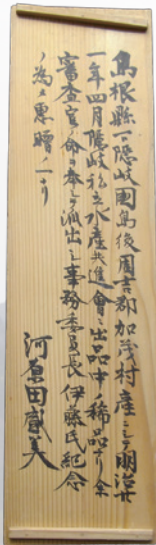 島根縣下隠岐國島後周吉郡加茂村産ニシテ明治廿
一年四月隠岐私立水産共進會ニ出品中ノ稀品ナリ余
審査官ノ命ヲ奉シ派出シ事務委員長伊藤氏紀念
ノ為メ恵贈ノ一ナリ
河原田盛美